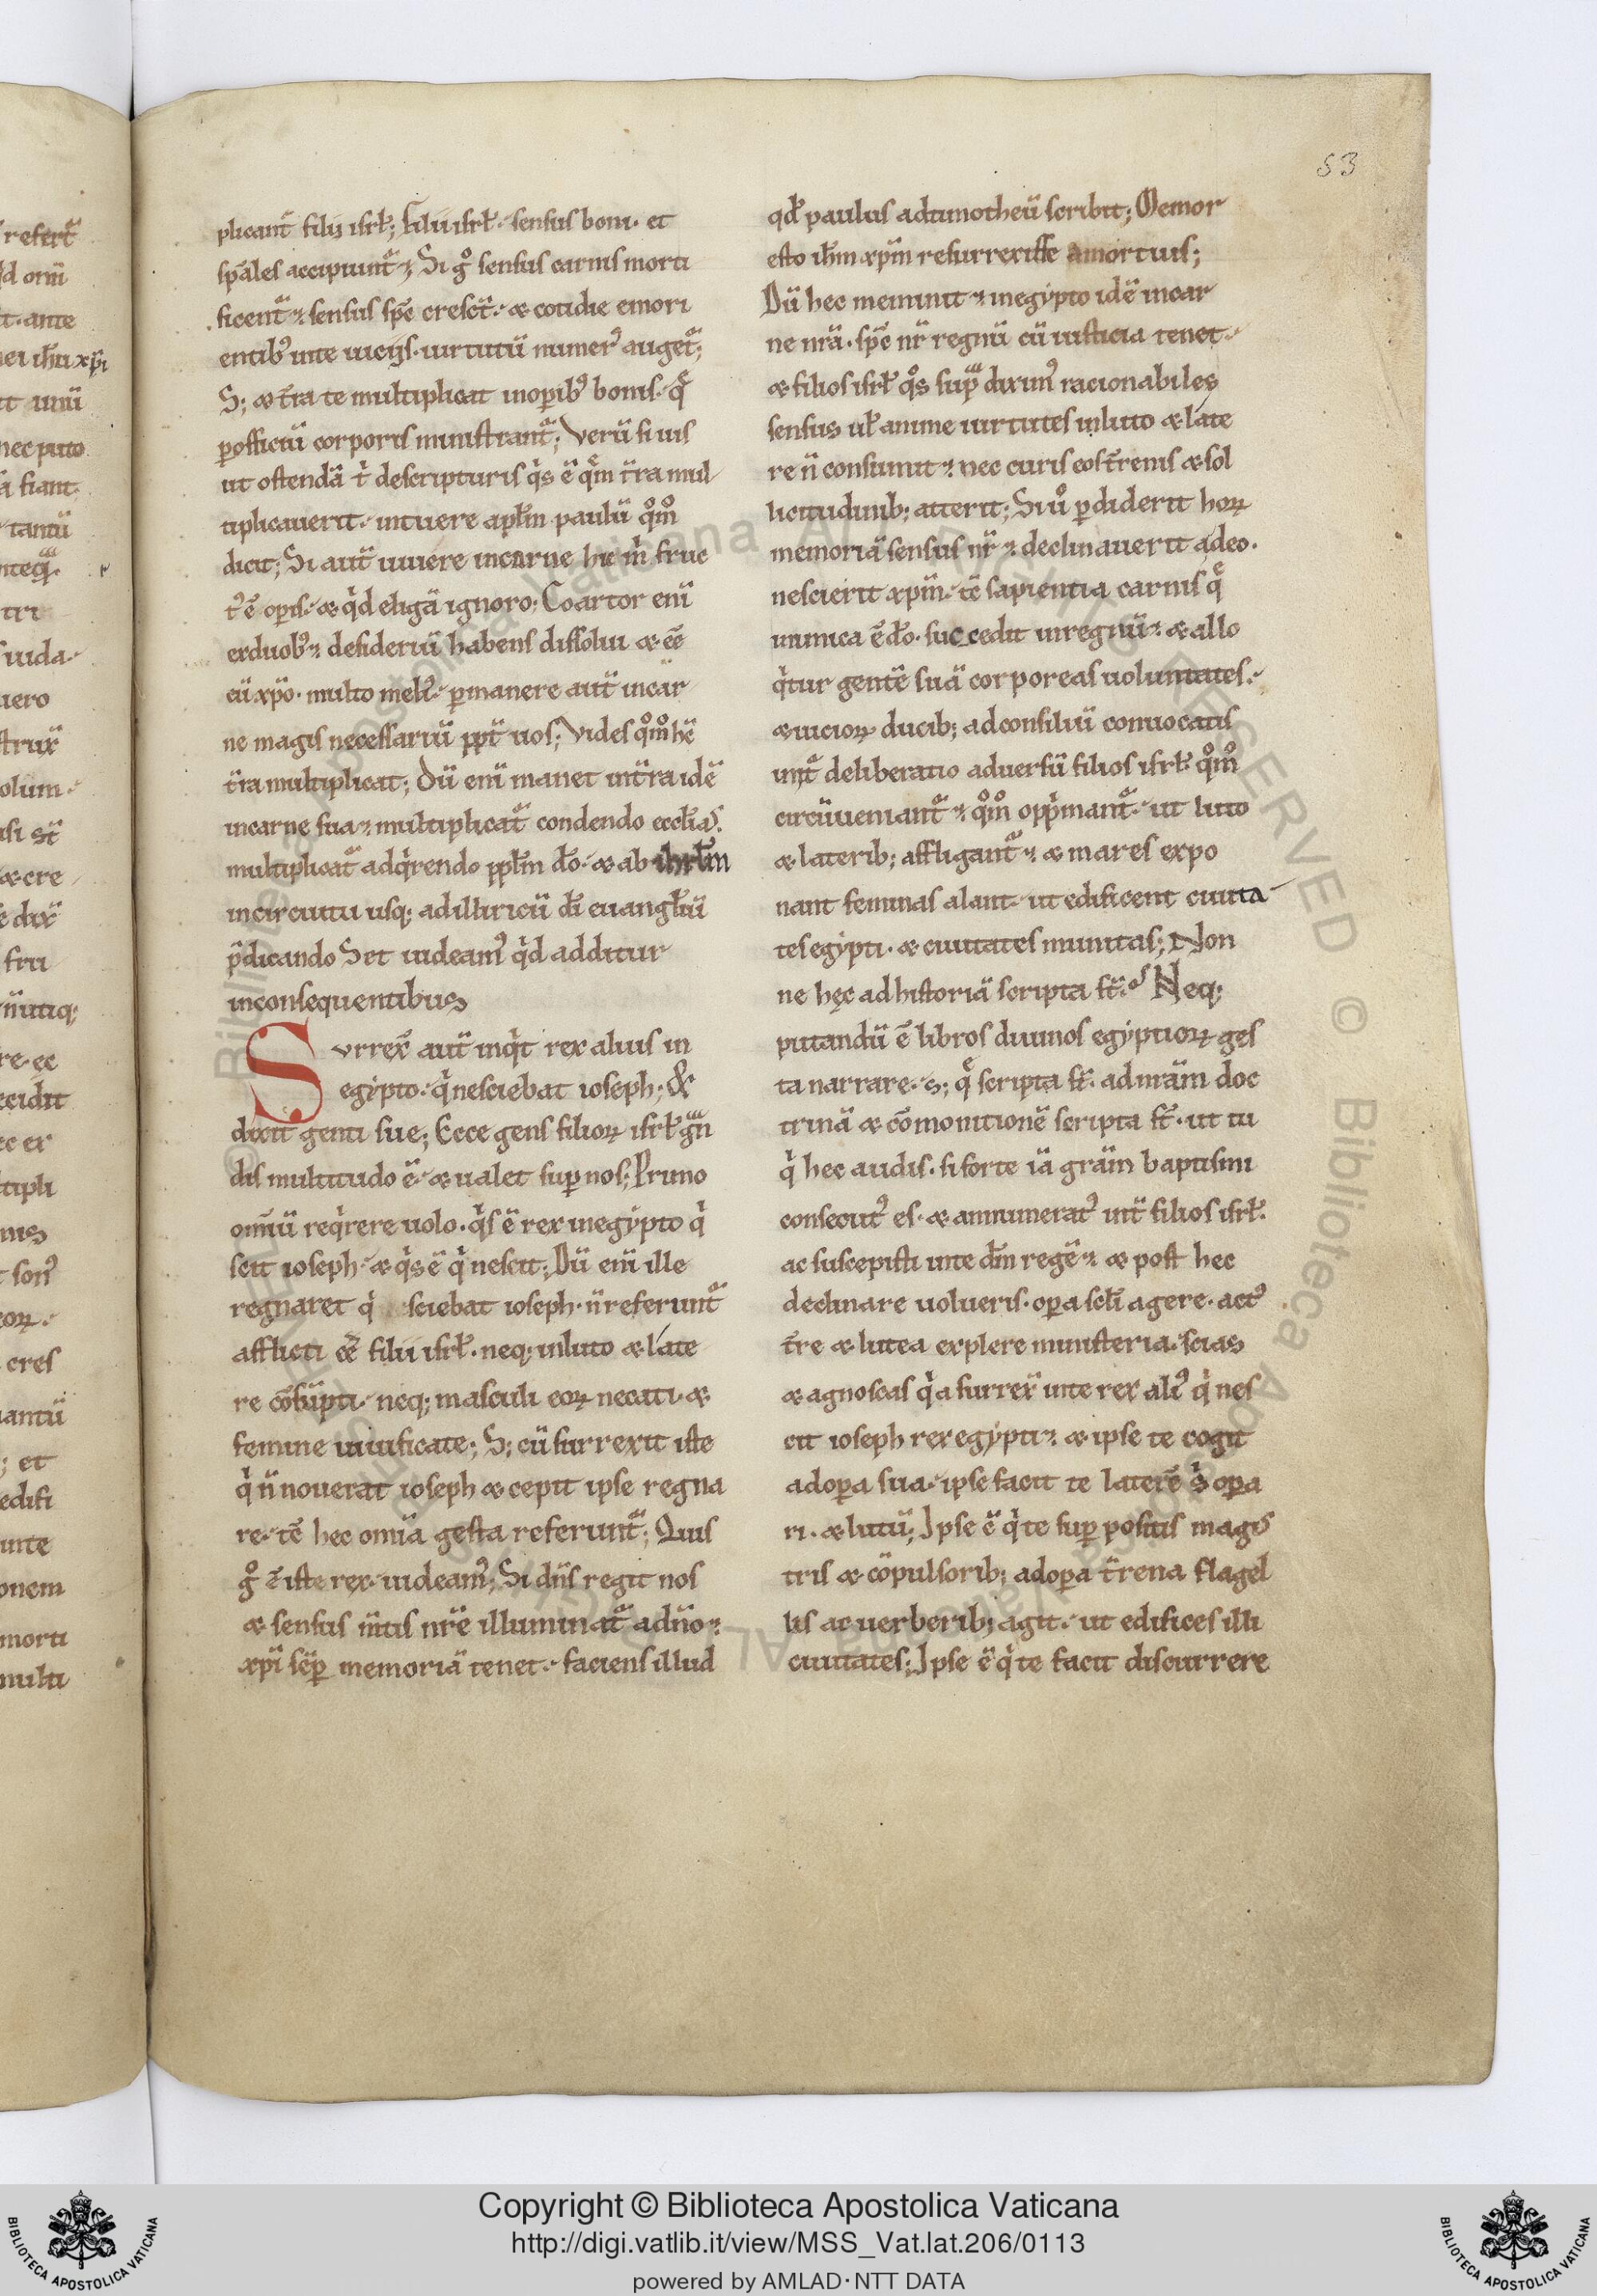 53
plicant᷑ filij isrł; Filii isrł· sensus boni· et
sp̄ales accipiunt᷑; Si gͦ sensus carnis morti
ficent᷑; sensus sp̄c cresc̄t· & cotidie emori
entibꝰ inte uicijs· uirtutū numerꝰ auget᷑;
S; & t̄ra te multiplicat inoꝑibꝰ bonis· q̄
ꝑofficiū corporis ministrant᷑; Verū si uis
ut ostendā t̍ descripturis qͥs ē q̄m t̄ra mul
tiplicauerit· intuere apłm paulū qͦmͦ
dicit; Si aut̄ uiuere incarne hic m̍ fruc
tꝰ ē oꝑis· & qͥd eligā ignoro; Coartor eni̅
exduobꝰ; desideriū habens dissolui & ee̅
cū xp̄o· multo melꝰ· ꝑmanere aut̄ incar
ne magis necessariū ꝓpt̄ uos; Vides qͦmͦ hē
t̄ra multiplicat; Dū eni̅ manet int̄ra idē
incarne sua; multiplicat᷑ condendo eccł̄ias·
multiplicat᷑ adqͥrendo ppłm do̅· & ab ihrłm
incircuitu usq; adilliricū di̅ euangłiū
p̄dicando Set uideamꝰ qͥd additur
inconsequentibus
Surrex̄ aut̄ inqͥt rex alius in
egypto· qͥ nesciebat ioseph; &
dixit genti sue; Ecce gens filioꝝ isrł gᷓn
dis multitudo ē· & ualet suꝑ nos; Primo
omniū reqͥrere uolo· qͥs ē rex inegypto qͥ
scit ioseph· & qͥs ē qͥ nescit; Dū eni̅ ille
regnaret qͥ sciebat ioseph· n̄ referunt᷑
afflicti ee̅ filii isrł· neq; inluto & late
re cōsūpti· neq; masculi eoꝝ necati· &
femine uiuificate; S; cū surrexit iste
qͥ n̄ nouerat ioseph & cepit ipse regna
re· tc̄ hec omīa gesta referunt᷑; Quis
gͦ ē iste rex· uideamꝰ; Si dn̄s regit nos
& sensus m̄tis nr̄e illuminat᷑ adn̄o;
xp̄i sēꝑ memoriā tenet· faciens illud
qd̄ paulus adtimotheū scribit; Memor
esto ihm̄ xp̄m resurrexisse amortuis;
Dū hec meminit; inegypto idē incar
ne nr̄a· sp̄c nr̄ regnū cū iusticia tenet·
& filios isrł qͦs sup̄ diximꝰ racionabiles
sensus ul̄ anime uirtutes inluto & late
re n̄ consumit; nec curis eos t̄renis & sol
licitudinib; atterit; Si ū̊ ꝑdiderit hoꝝ
memoriā sensus nr̄; declinauerit adeo·
nescierit xp̄m· tc̄ sapientia carnis q̄
inimica ē do̅· succedit inregnū; & allo
qͥtur gentē suā corporeas uoluntates·
& uicioꝝ ducib; adconsiliū conuocatis
init᷑ deliberatio aduersū filios isrł qͦmͦ
circūueniant᷑; qͦmͦ oppͥmant᷑· ut luto
& laterib; affligant᷑; & mares expo
nant feminas alant· ut edificent ciuita
tes egypti· & ciuitates munitas; Non
ne hęc ad historiā scripta st̄· Neq;
putandū ē libros diuinos egyptioꝝ ges
ta narrare· s; q̄ scripta st̄· ad nr̄am doc
trinā & cōmonitionē scripta st̄· ut tu
qͥ hec audis· si forte iā gr̄am baptismi
consecutꝰ es· & annumeratꝰ int̄ filios isrł·
ac suscepisti inte dm̄ regē; & post hec
declinare uolueris· oꝑa sc̄li agere· actꝰ
t̄re & lutea explere ministeria· scias
& agnoscas qͥa surrex̄ inte rex aliꝰ qͥ nes
cit ioseph rex egypti; & ipse te cogit
adoꝑa sua· ipse facit te laterē s̍ oꝑa
ri· & lutū; Ipse ē qͥ te suꝑ positis magis
tris & cōpulsorib; adoꝑa t̄rena flagel
lis ac uerberib; agit· ut edifices illi
ciuitates; Ipse ē qͥ te facit discurrere
Copyright © Biblioteca Apostolica Vaticana
http://digi.vatlib.it/view/MSS_Vat.lat.206/0113
powered by AMLAD·NTT DATA
BIBLIOTECA APOSTOLICA VATICANA
BIBLIOTECA APOSTOLICA VATICANA